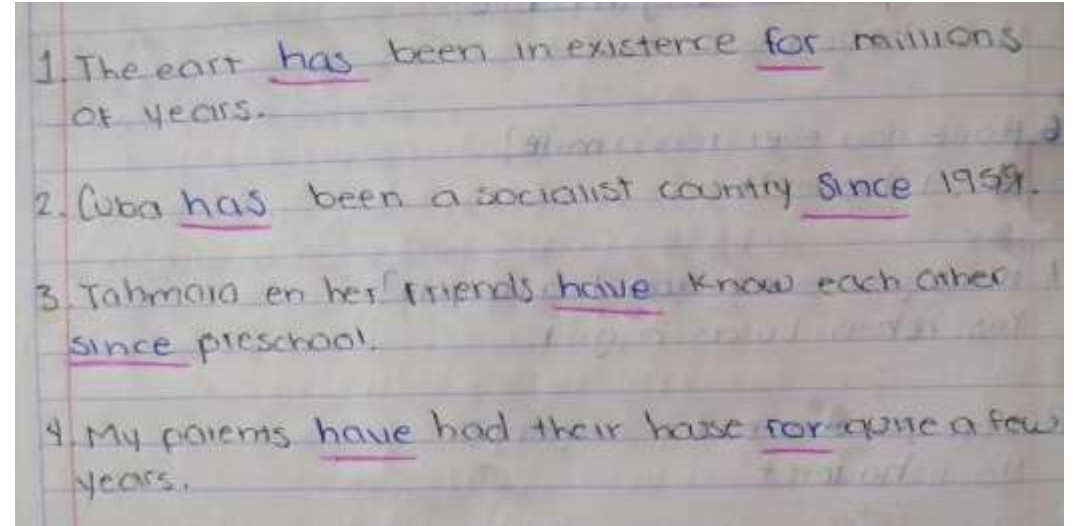 1. The eart has been in existence for millions
of years.
2. Cuba has been a socialist country since 1959.
3. Tahmara en her friends have know each other
since preschool.
4. My parents have had their house for quite a few
years.